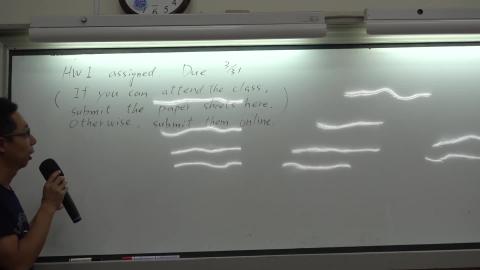 HW1 assigned Due 3/31
( If you can attend the class,
submit the paper sheets here. )
Otherwise, submit them online.